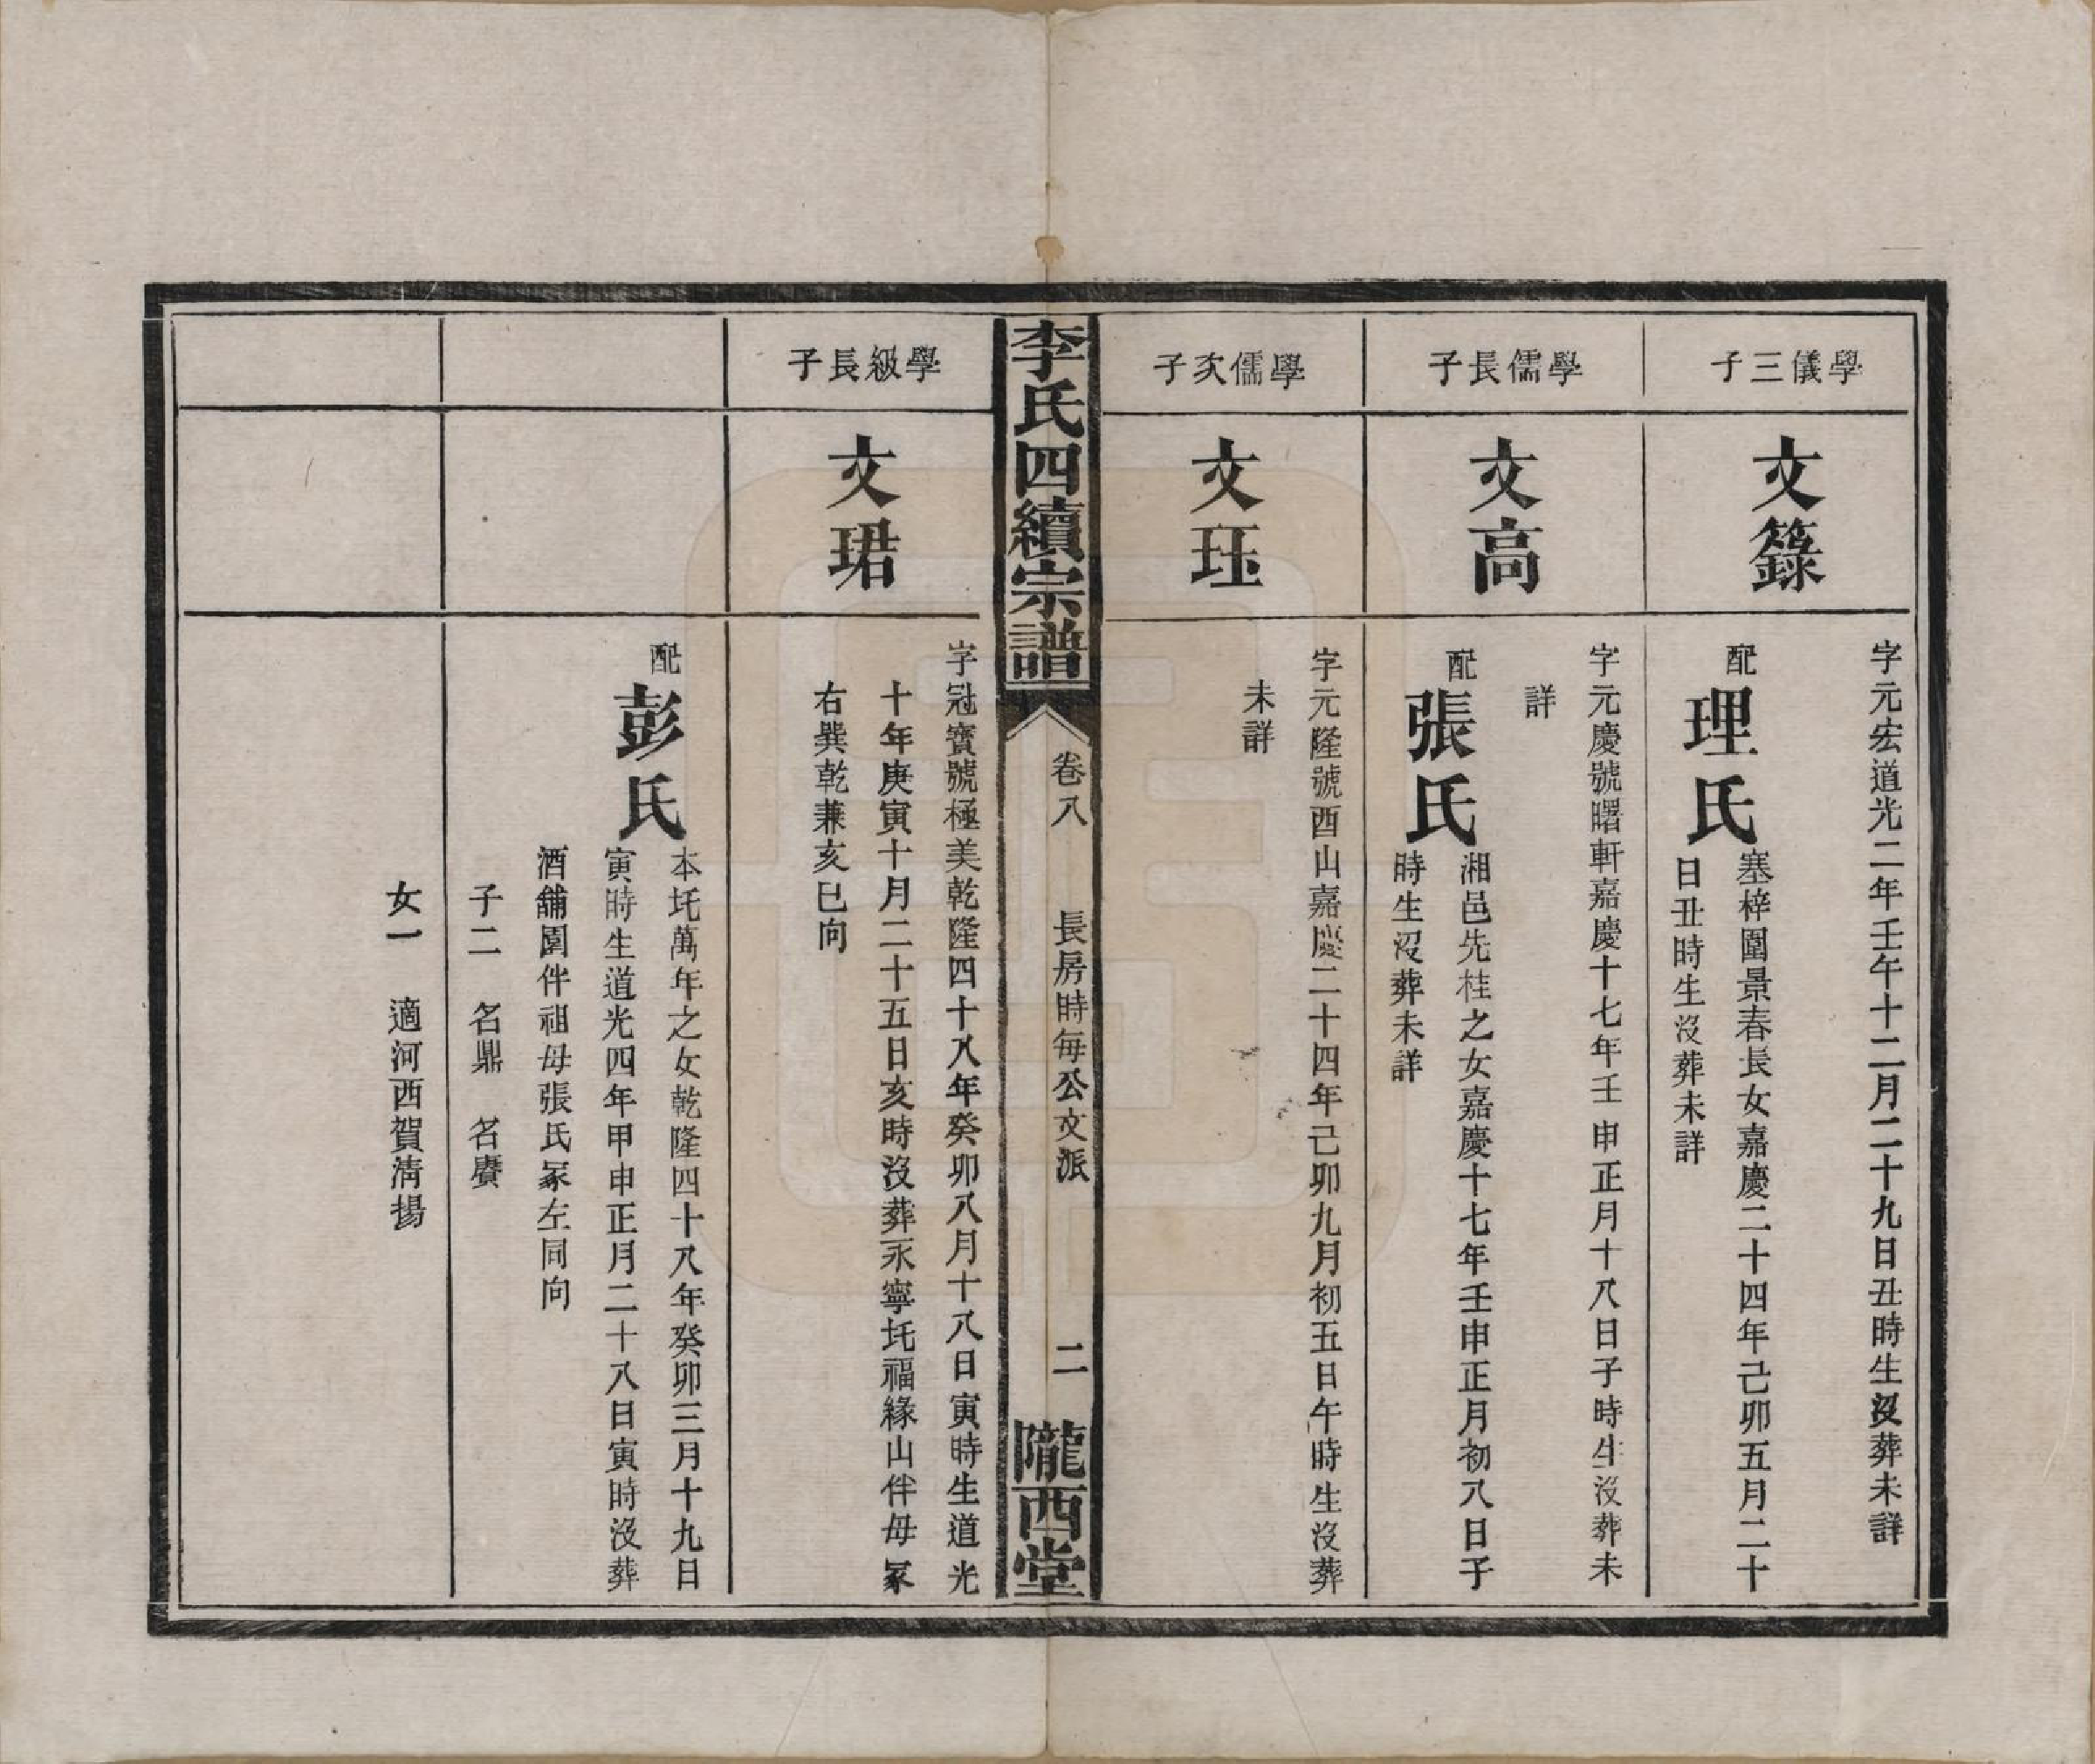 學儀三子
文籙
字元宏道光二年壬午十二月二十九日丑時生沒葬未詳
配
理氏
塞梓圍景春長女嘉慶二十四年己卯五月二十
日丑時生沒葬未詳
學儒長子
文高
字元慶號曙軒嘉慶十七年壬申正月十八日子時生沒葬未
詳
配
張氏
湘邑先桂之女嘉慶十七年壬申正月初八日子
時生沒葬未詳
學儒次子
文珏
字元隆號酉山嘉慶二十四年己卯九月初五日午時生沒葬
未詳
李氏四續宗譜
卷八
長房時每公文派
二
隴西堂
學級長子
文珺
字冠寶號極美乾隆四十八年癸卯八月十八日寅時生道光
十年庚寅十月二十五日亥時沒葬永寧圫福緣山伴母冢
右巽乾兼亥巳向
配
彭氏
本圫萬年之女乾隆四十八年癸卯三月十九日
寅時生道光四年甲申正月二十八日寅時沒葬
酒舖園伴祖母張氏冢左同向
子二 名鼎 名賡
女一 適河西賀清揚